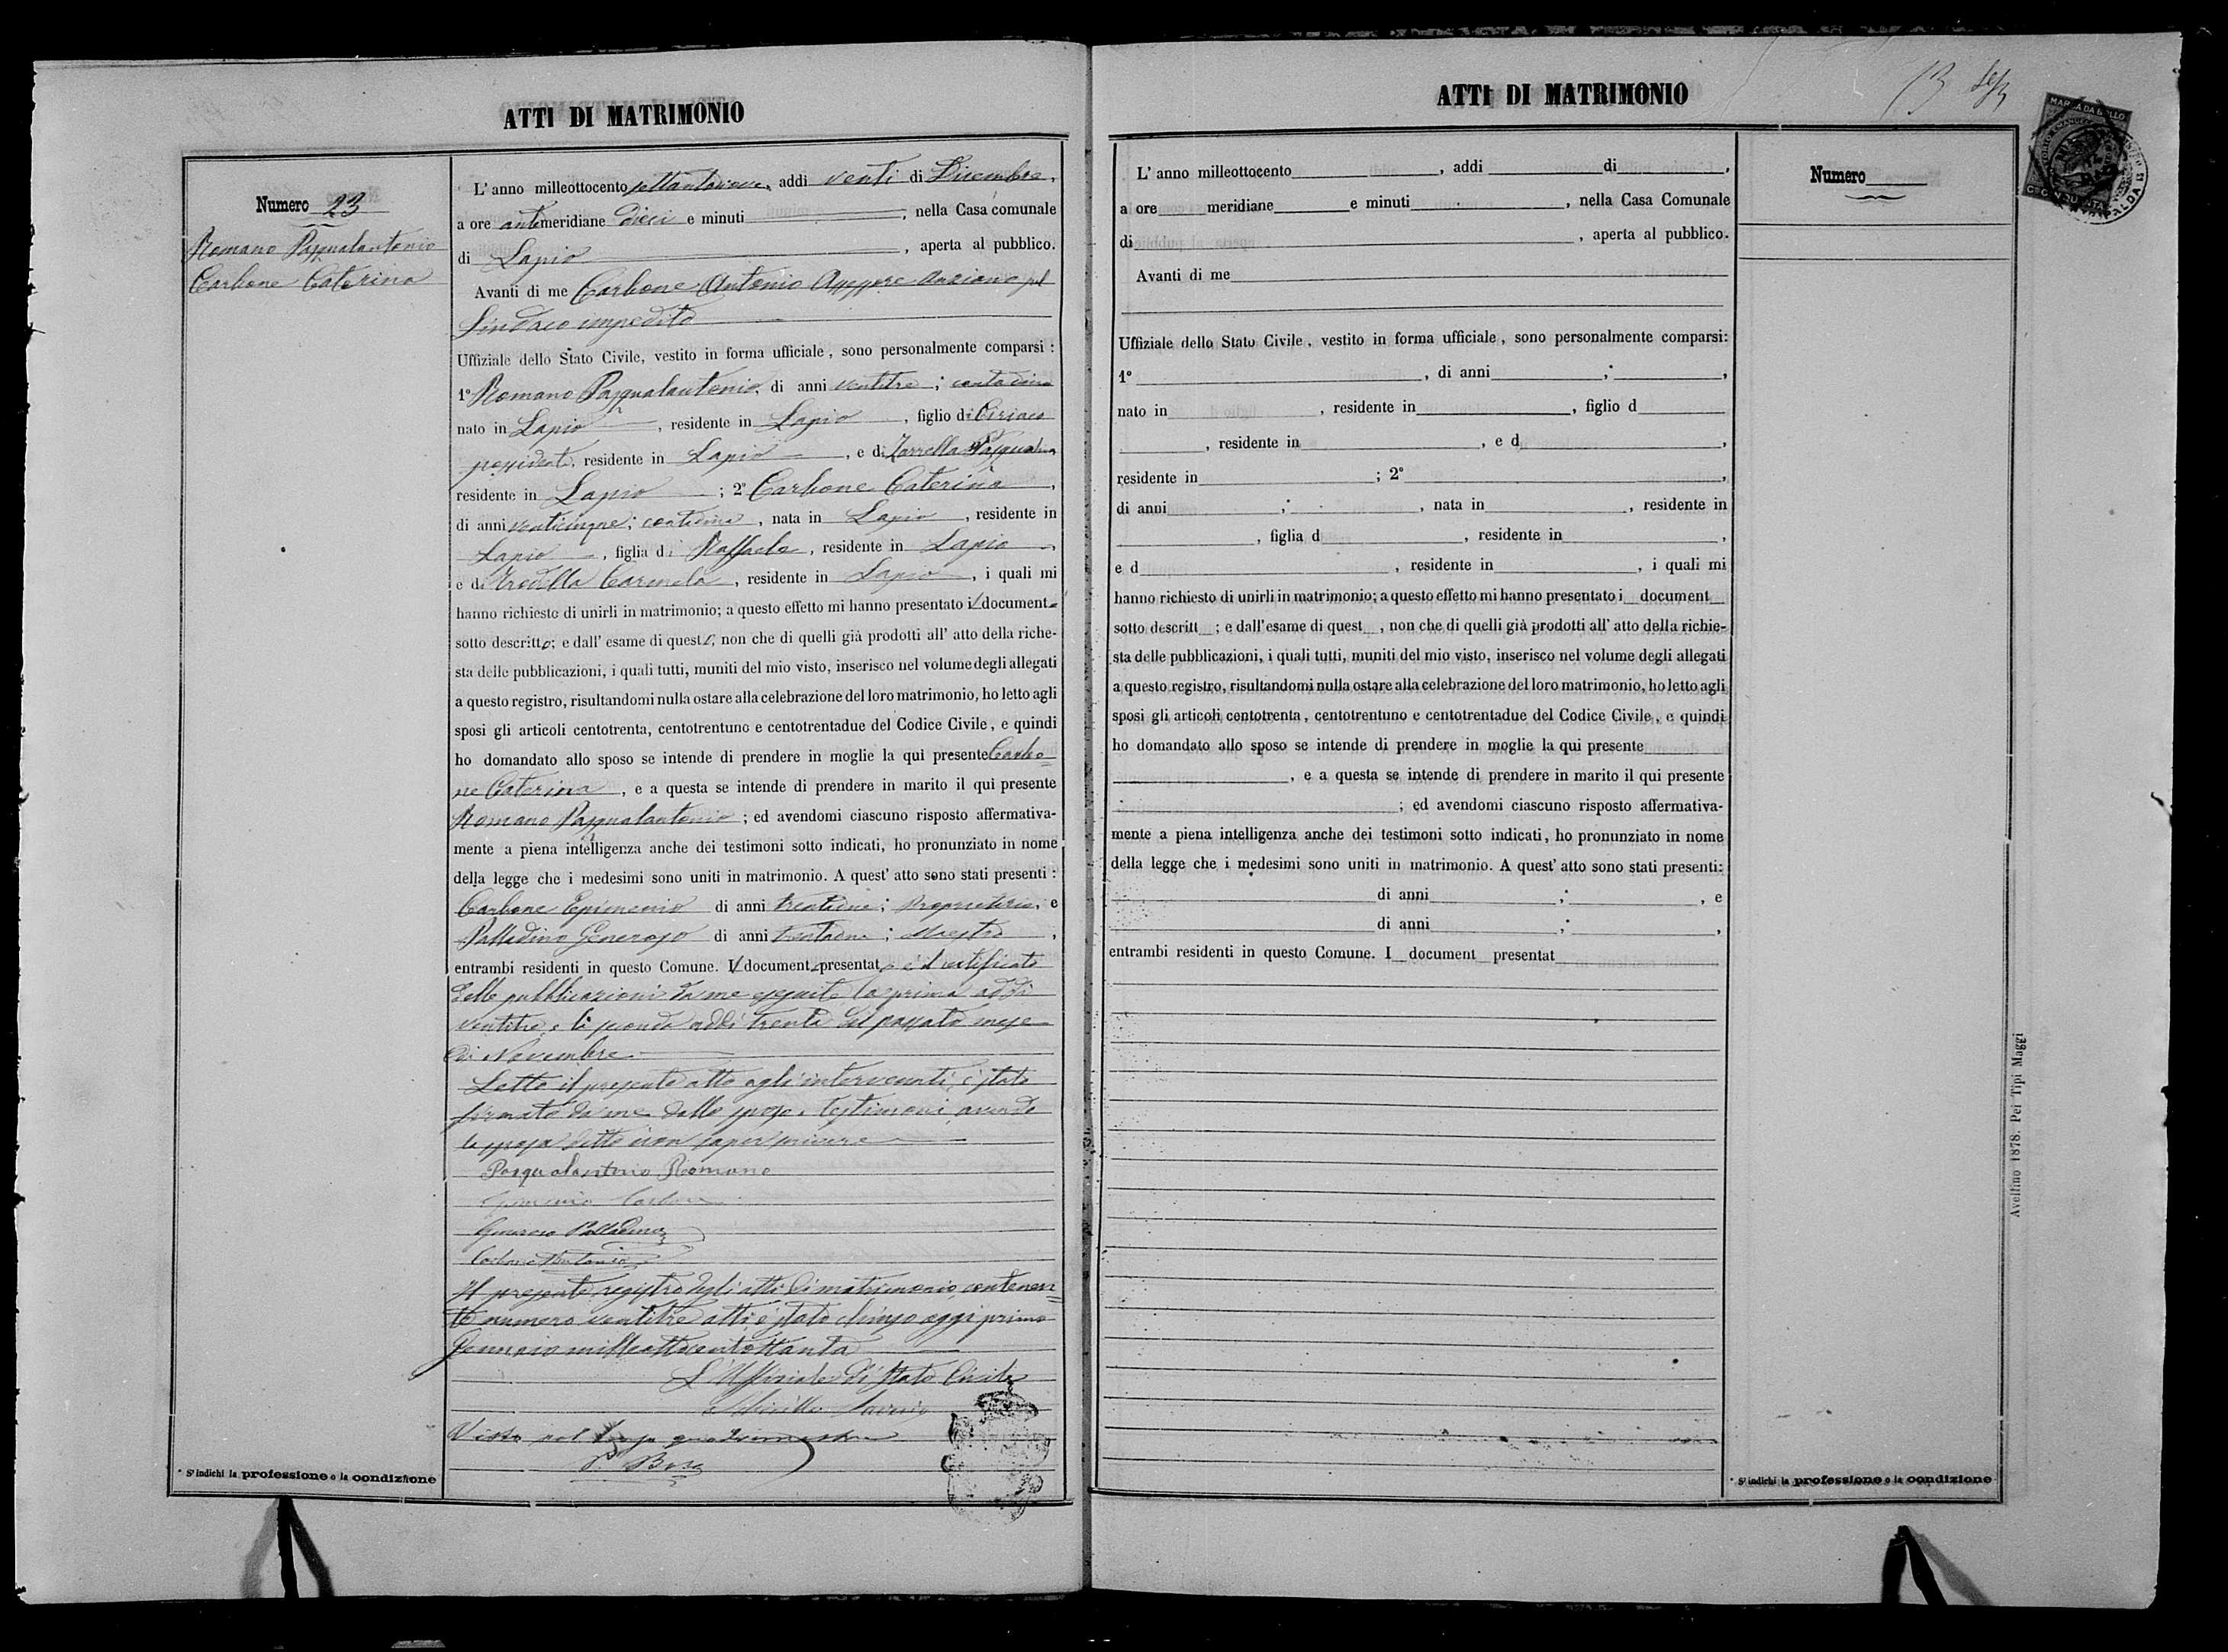 ATTI DI MATRIMONIO
Numero 23
Romano Pasqualantonio
Carbone Caterina
L'anno milleottocento settantanove, addi venti di Dicembre,
a ore antimeridiane dieci e minuti , nella Casa comunale
di Lapio , aperta al pubblico.
Avanti di me Carbone Antonio Assessore Anziano pel
Sindaco impedito
Uffiziale dello Stato Civile, vestito in forma ufficiale, sono personalmente comparsi :
1° Romano Pasqualantonio, di anni ventitre; contadino
nato in Lapio , residente in Lapio , figlio di Ciriaco
possidente, residente in Lapio , e di Zarrella Pasqualina
residente in Lapio ; 2° Carbone Caterina ,
di anni venticinque; contadina , nata in Lapio , residente in
Lapio , figlia di Raffaele , residente in Lapio ,
e di Carmela , residente in Lapio , i quali mi
hanno richiesto di unirli in matrimonio; a questo effetto mi hanno presentato il documento
sotto descritto; e dall' esame di questo, non che di quelli già prodotti all' atto della riche-
sta delle pubblicazioni, i quali tutti, muniti del mio visto, inserisco nel volume degli allegati
a questo registro, risultandomi nulla ostare alla celebrazione del loro matrimonio, ho letto agli
sposi gli articoli centotrenta, centotrentuno e centotrentadue del Codice Civile, e quindi
ho domandato allo sposo se intende di prendere in moglie la qui presente Carbo=
ne Caterina , e a questa se intende di prendere in marito il qui presente
Romano Pasqualantonio ; ed avendomi ciascuno risposto affermativa-
mente a piena intelligenza anche dei testimoni sotto indicati, ho pronunziato in nome
della legge che i medesimi sono uniti in matrimonio. A quest' atto sono stati presenti :
Carbone Epimenio di anni ; Proprietario, e
Palladino Generoso di anni ; Maestro ,
entrambi residenti in questo Comune. Il documento presentato è il certificato
delle pubblicazioni da me eseguite la prima addi
ventitre, e la seconda addi trenta del passato mese
di Novembre
Letto il presente atto agli intervenuti, è stato
firmato da me dallo sposo e testimoni, avendo
la sposa detto non saper scrivere
Pasqualantonio Romano
Epimenio Carbone
Generoso Palladino
Carbone Antonio
Il presente registro degli atti di matrimonio, contenen=
te numero ventitre atti, è stato chiuso oggi primo
Gennaio milleottocentottanta
L'Uffiziale di Stato Civile
Saverio
Visto pel quadrimestre
* S'indichi la professione o la condizione
ATTI DI MATRIMONIO
13
MARCA DA BOLLO
L'anno milleottocento , addi di ,
a ore meridiane e minuti , nella Casa Comunale
di , aperta al pubblico.
Avanti di me
Uffiziale dello Stato Civile, vestito in forma ufficiale, sono personalmente comparsi:
1° , di anni ; ,
nato in , residente in , figlio d
, residente in , e d ,
residente in ; 2° ,
di anni ; , nata in , residente in
, figlia d , residente in ,
e d , residente in , i quali mi
hanno richiesto di unirli in matrimonio; a questo effetto mi hanno presentato i document
sotto descritt ; e dall'esame di quest , non che di quelli già prodotti all' atto della richie-
sta delle pubblicazioni, i quali tutti, muniti del mio visto, inserisco nel volume degli allegati
a questo registro, risultandomi nulla ostare alla celebrazione del loro matrimonio, ho letto agli
sposi gli articoli centotrenta, centotrentuno e centotrentadue del Codice Civile, e quindi
ho domandato allo sposo se intende di prendere in moglie la qui presente
, e a questa se intende di prendere in marito il qui presente
; ed avendomi ciascuno risposto affermativa-
mente a piena intelligenza anche dei testimoni sotto indicati, ho pronunziato in nome
della legge che i medesimi sono uniti in matrimonio. A quest' atto sono stati presenti:
di anni ; , e
di anni ; ,
entrambi residenti in questo Comune. I document presentat
Numero
* S'indichi la professione o la condizione
Avellino 1878. Pei Tipi Maggi